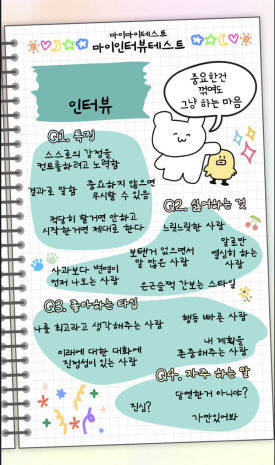 마이마이테스트
마이인터뷰테스트
인터뷰
중요한건
꺾여도
그냥 하는 마음
Q1. 특징
스스로의 감정을
컨트롤하려고 노력함
결과로 말함
중요하지 않으면
무시할 수 있음
적당히 할거면 안하고
시작한거면 제대로 한다
Q2. 싫어하는 것
느릿느릿한 사람
보태준거 없으면서
말 많은 사람
말로만
열심히 하는
사람
사과보다 변명이
먼저 나오는 사람
은근슬쩍 간보는 스타일
Q3. 좋아하는 타입
나를 최고라고 생각해주는 사람
행동 빠른 사람
미래에 대한 대화에
진정성이 있는 사람
내 계획을
존중해주는 사람
Q4. 자주 하는 말
당연한거 아니야?
진심?
가만있어봐